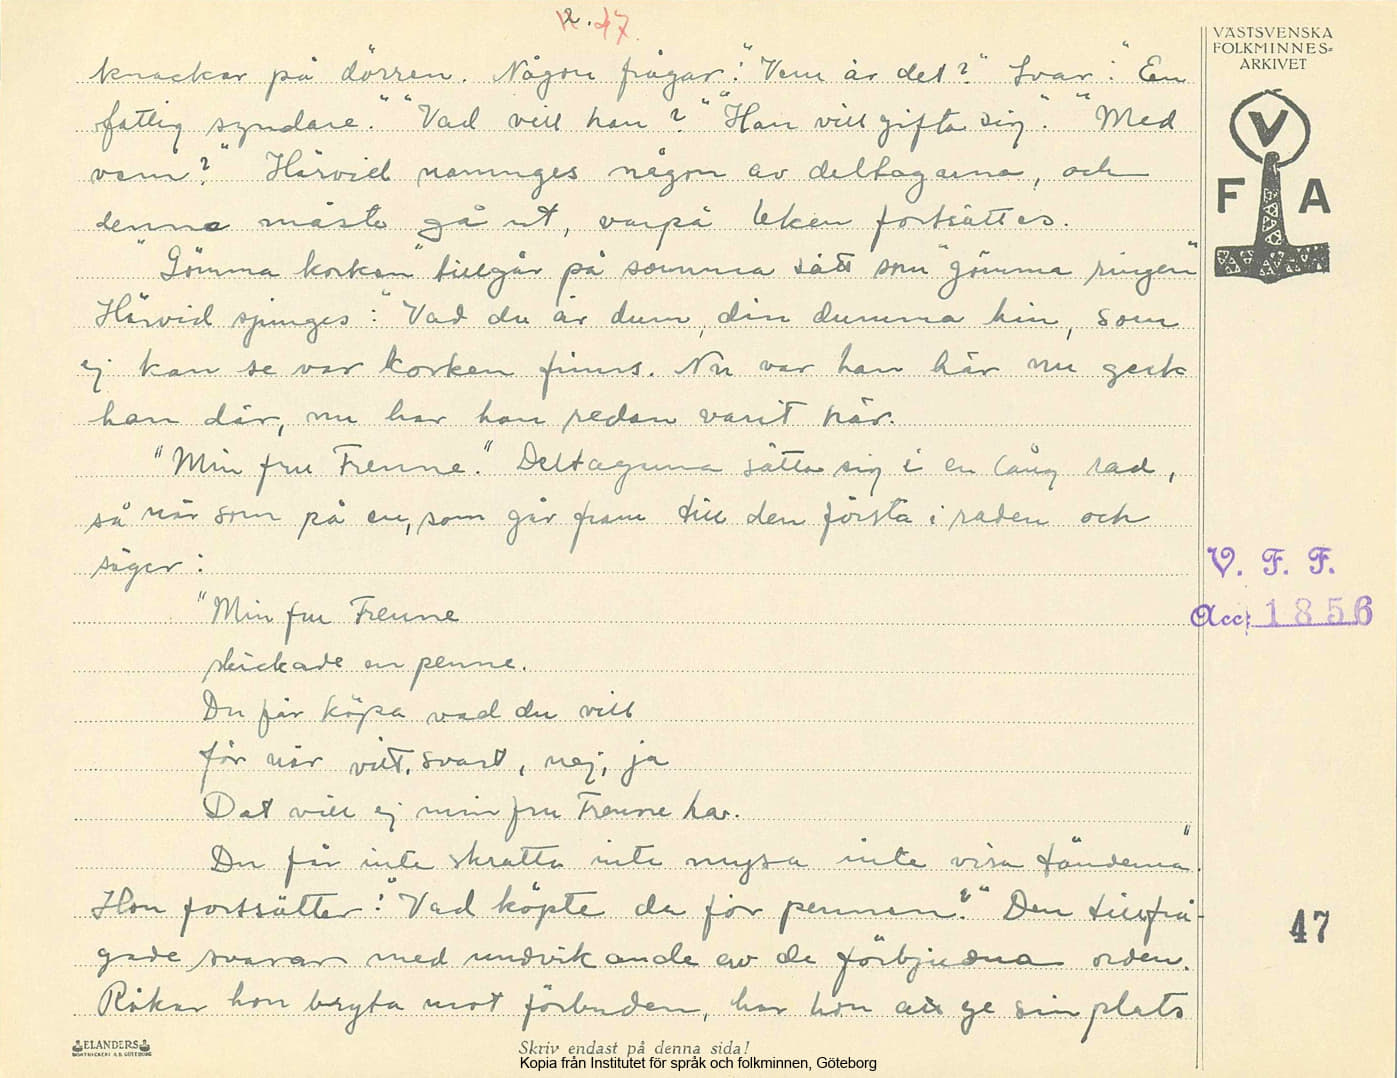 2. 47.
VÄSTSVENSKA
FOLKMINNES-
ARKIVET
V
F A
knackar på dörren. Någon frågar: "Vem är det?" Svar: "En
fattig syndare." "Vad vill han?" "Han vill gifta sig". "Med
vem?" Härvid namnges någon av deltagarna, och
denne måste gå ut, varpå leken fortsättes.
"Gömma korken" tillgår på samma sätt som "gömma ringen"
Härvid sjunges: "Vad du är dum, din dumma hin, som
ej kan se var korken finns. Nu var han här nu gick
han där, nu har han redan varit här.
"Min fru Frenne." Deltagarna sätta sig i en lång rad,
så när som på en, som går fram till den första i raden och
säger:
"Min fru Frenne
skickade en penne.
Du får köpa vad du vill
för när vitt, svart, nej, ja
Det vill ej min fru Frenne ha.
Du får inte skratta inte mysa inte visa tänderna".
Hon fortsätter: "Vad köpte du för pennen?" Den tillfrå-
gade svarar med undvikande av de förbjudna orden.
Råkar hon bryta mot förbuden, har hon att ge sin plats
V. F. F.
Acc: 1856
47
ELANDERS
BOKTRYCKERI A.B. GÖTEBORG
Skriv endast på denna sida!
Kopia från Institutet för språk och folkminnen, Göteborg